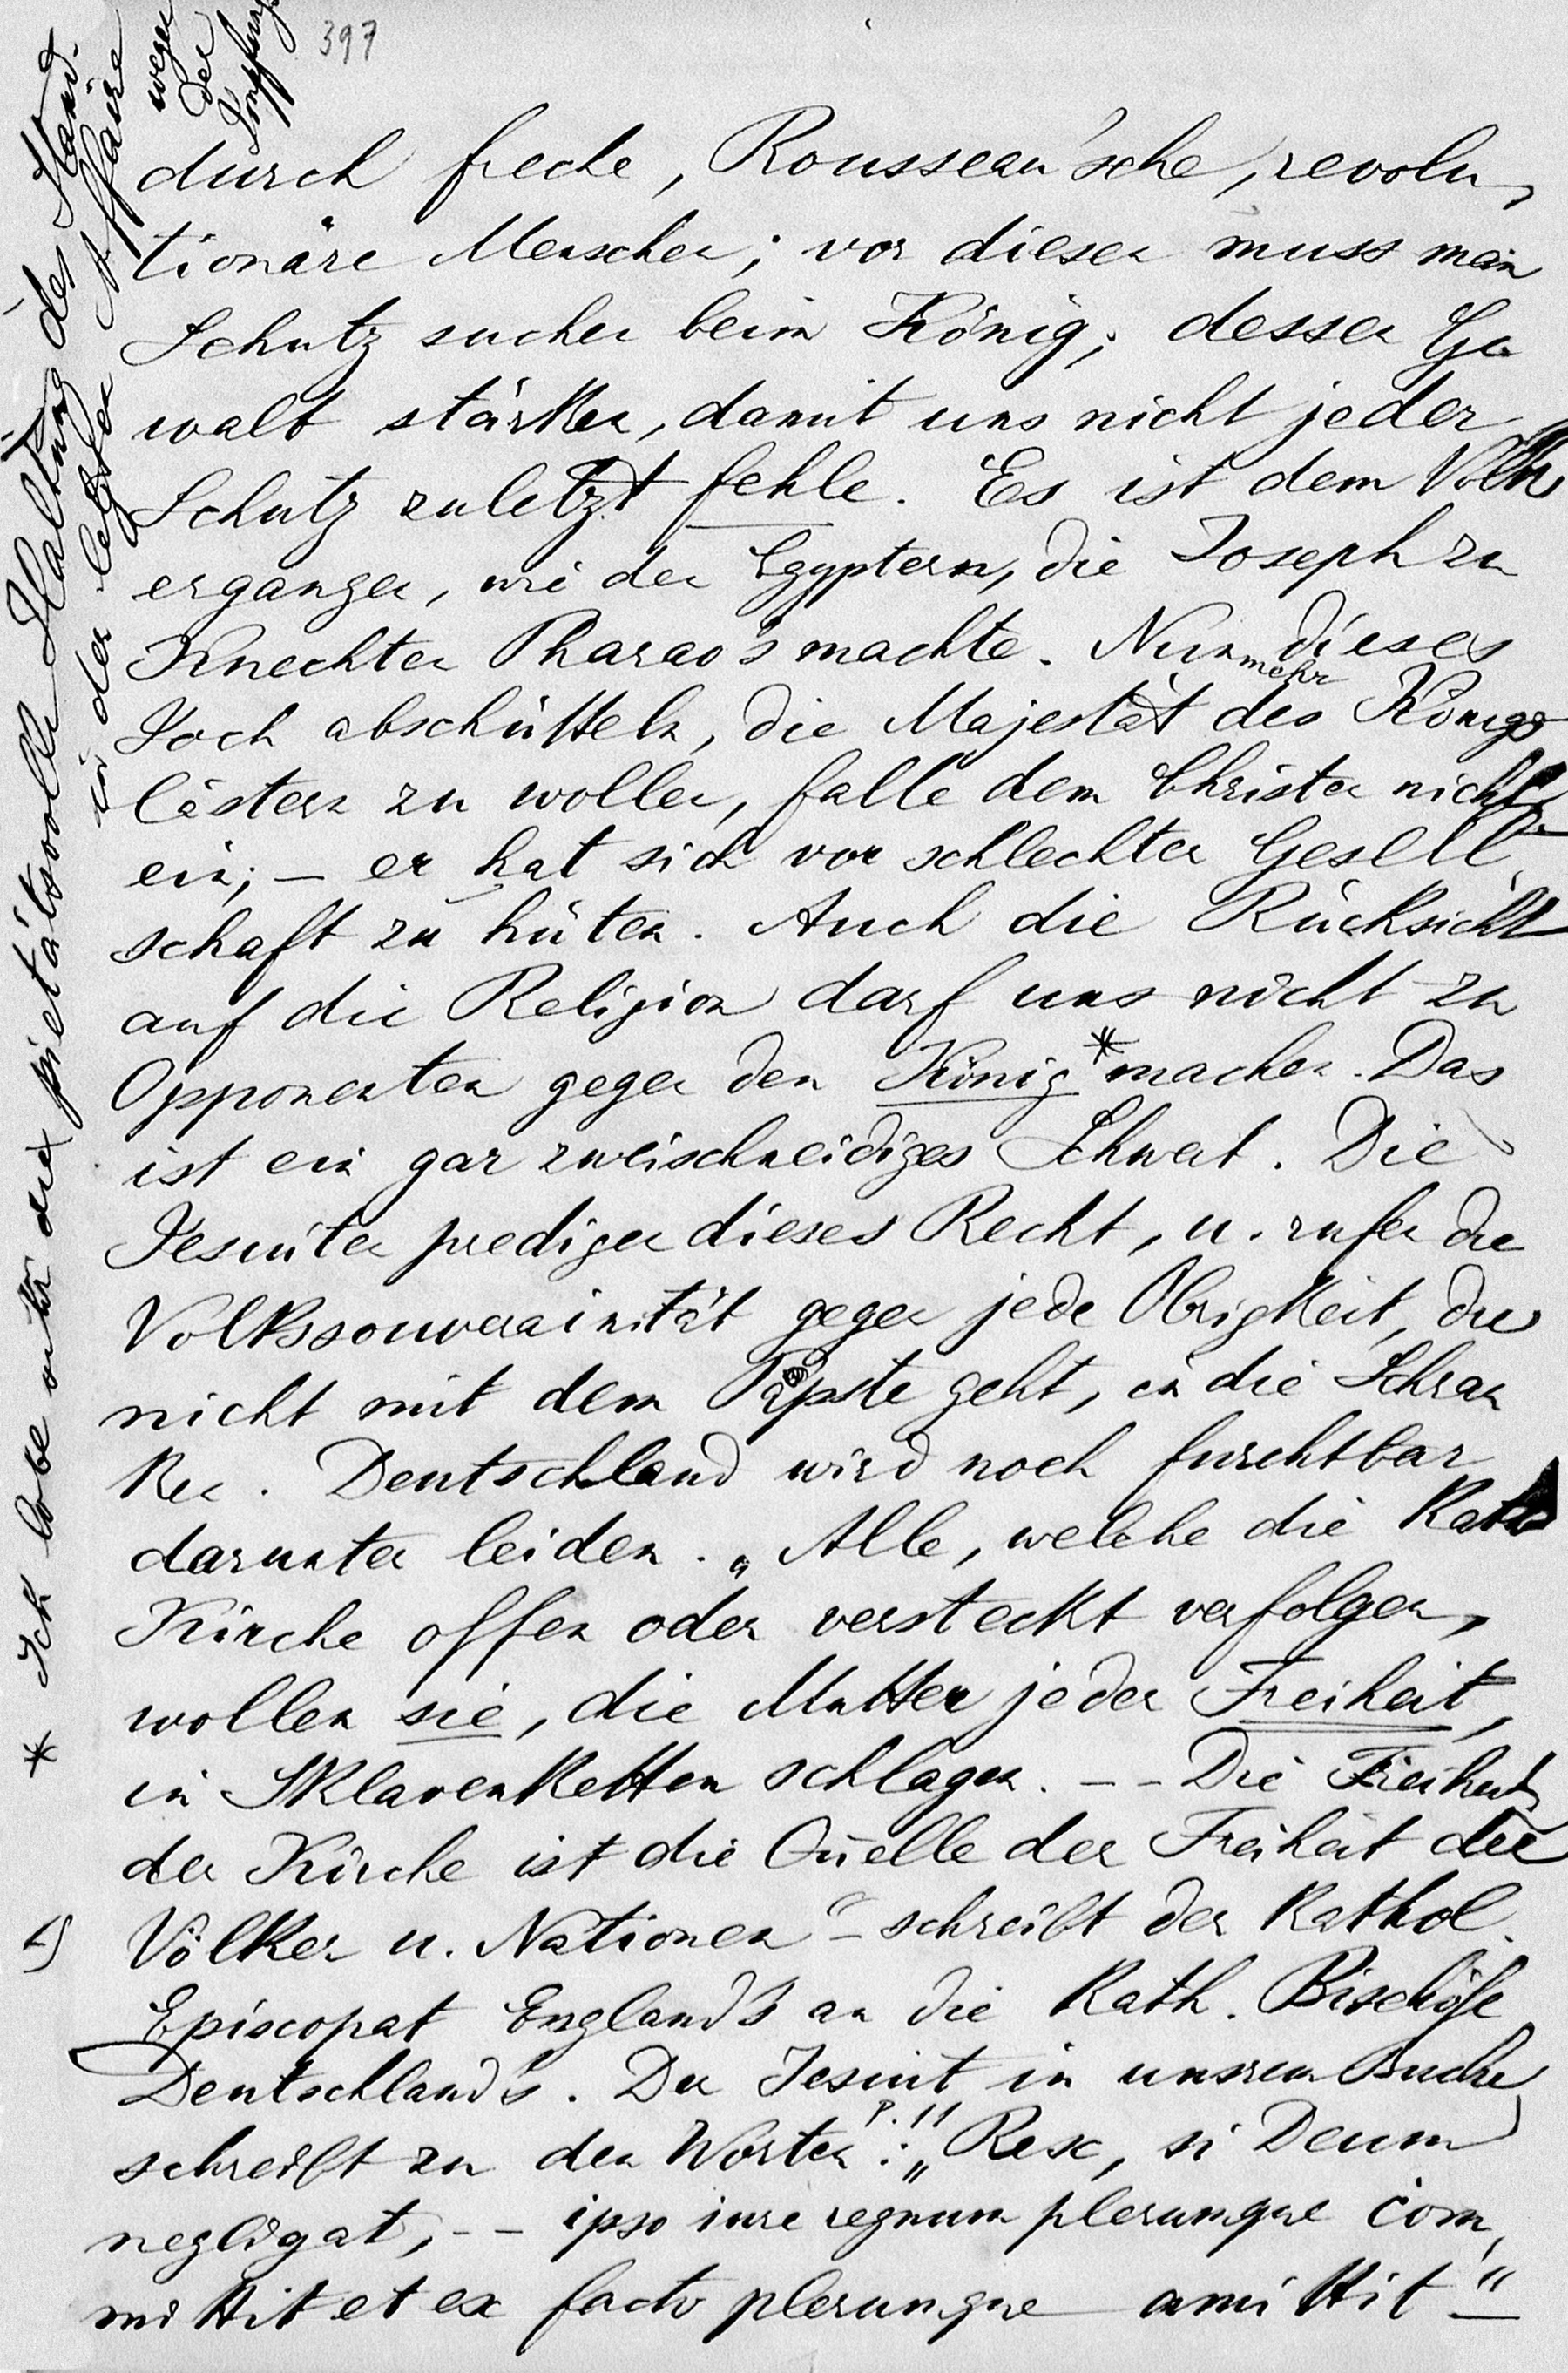 397
durch freche, Rousseau'sche, revolu-
tionäre Menschen; vor diesen muss man
Schutz suchen beim König; dessen Ge
walt stärken, damit uns nicht jeder
Schutz zuletzt fehle. Es ist dem Volke
ergangen, wie den Egyptern, die Joseph zu
Knechten Pharao's machte. Nunmehr dieses
Joch abschütteln, die Majestät des Königs
lästern zu wollen, falle dem Christen nicht
ein; – er hat sich vor schlechter Gesell
schaft zu hüten. Auch die Rücksicht
auf die Religion darf uns nicht zu
Opponenten gegen den König * machen. Das
ist ein gar zweischneidiges Schwert. Die
Jesuiten predigen dieses Recht, u. rufen die
Volkssouverainität gegen jede Obrigkeit, die
nicht mit dem Papste geht, in die Schran
ken. Deutschland wird noch furchtbar
darunter leiden. „Alle, welche die Kath
Kirche offen oder versteckt verfolgen,
wollen sie, die Mutter jeder Freiheit,
in Sklavenketten schlagen. – – Die Freiheit
der Kirche ist die Quelle der Freiheit der
1) Völker u. Nationen" – schreibt der kathol.
Episcopat England's an die Kath. Bischöfe
Deutschland's. Der Jesuit in unsrem Buche
schreibt zu den Worten P. 11: „Rex, si Deum
negligat, – – ipso iure regnum plerumque com,
mittit et ex facto plerumque amittit" –
* Ich lobe mir die pietätsvolle Haltung des Stand.
in der letzten Affaire
wegen
der
Impfung